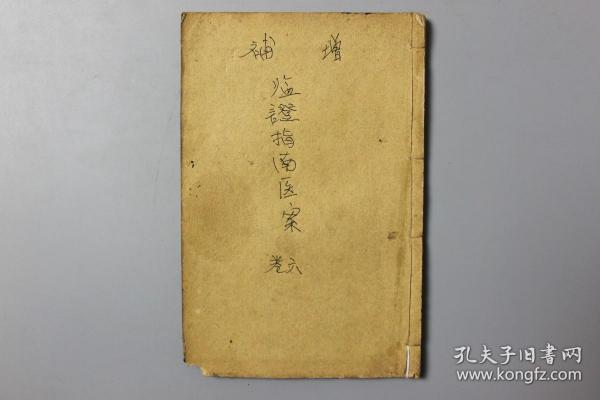 增補
临證指南医案
卷六
孔夫子旧书网
www.kongfz.com